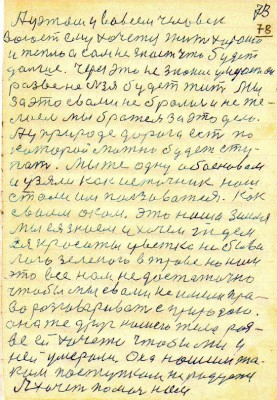 78
78
А поэтому и вовсем человек
хочет ему хочется жить хорошо
и тепло а сам не знает что будет
дальше. Через это не знание умирать
разве нельзя будет жить Мы
за это с вами не брали и не же-
лаем мы браться за это дело.
А у природе дорога есть по
которой можно будет сту-
пать. Мы же одну обосновали
и взяли как источник нам
стали им пользоваться. Как
своим оком. Это наша Земля
мы ея знаем и хочем
ея красоты цветка небыва
лого зеленого в траве но нам
это все нам не достаточно
чтобы мы с вами не имели пра-
во разговаривать с природою.
она же друг нашего тела раз-
ве ей хочется чтобы мы у
ней умерали. Она нашим та-
ким поступкам не
А хочет помоч нам